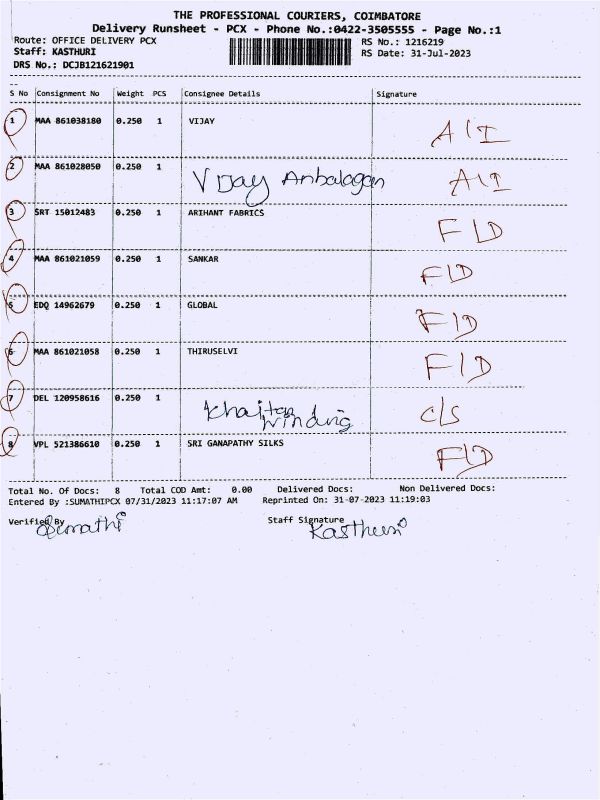 THE PROFESSIONAL COURIERS, COIMBATORE
Delivery Runsheet - PCX - Phone No.:0422-3505555 - Page No.:1
Route: OFFICE DELIVERY PCX RS No.: 1216219
Staff: KASTHURI RS Date: 31-Jul-2023
DRS No.: DCJB121621901
S No Consignment No Weight PCS Consignee Details Signature
1 MAA 861038180 0.250 1 VIJAY A\I
2 MAA 861028050 0.250 1 Vijay Anbalagan A\I
3 SRT 15012483 0.250 1 ARIHANT FABRICS F\D
4 MAA 861021059 0.250 1 SANKAR F\D
5 EDQ 14962679 0.250 1 GLOBAL F\D
6 MAA 861021058 0.250 1 THIRUSELVI F\D
7 DEL 120958616 0.250 Khaitan Winding C/S
8 VPL 521386610 0.250 1 SRI GANAPATHY SILKS F\D
Total No. Of Docs: 8 Total COD Amt: 0.00 Delivered Docs: Non Delivered Docs:
Entered By :SUMATHIPCX 07/31/2023 11:17:07 AM Reprinted On: 31-07-2023 11:19:03
Verified By Sumathi Staff Signature Kasthuri